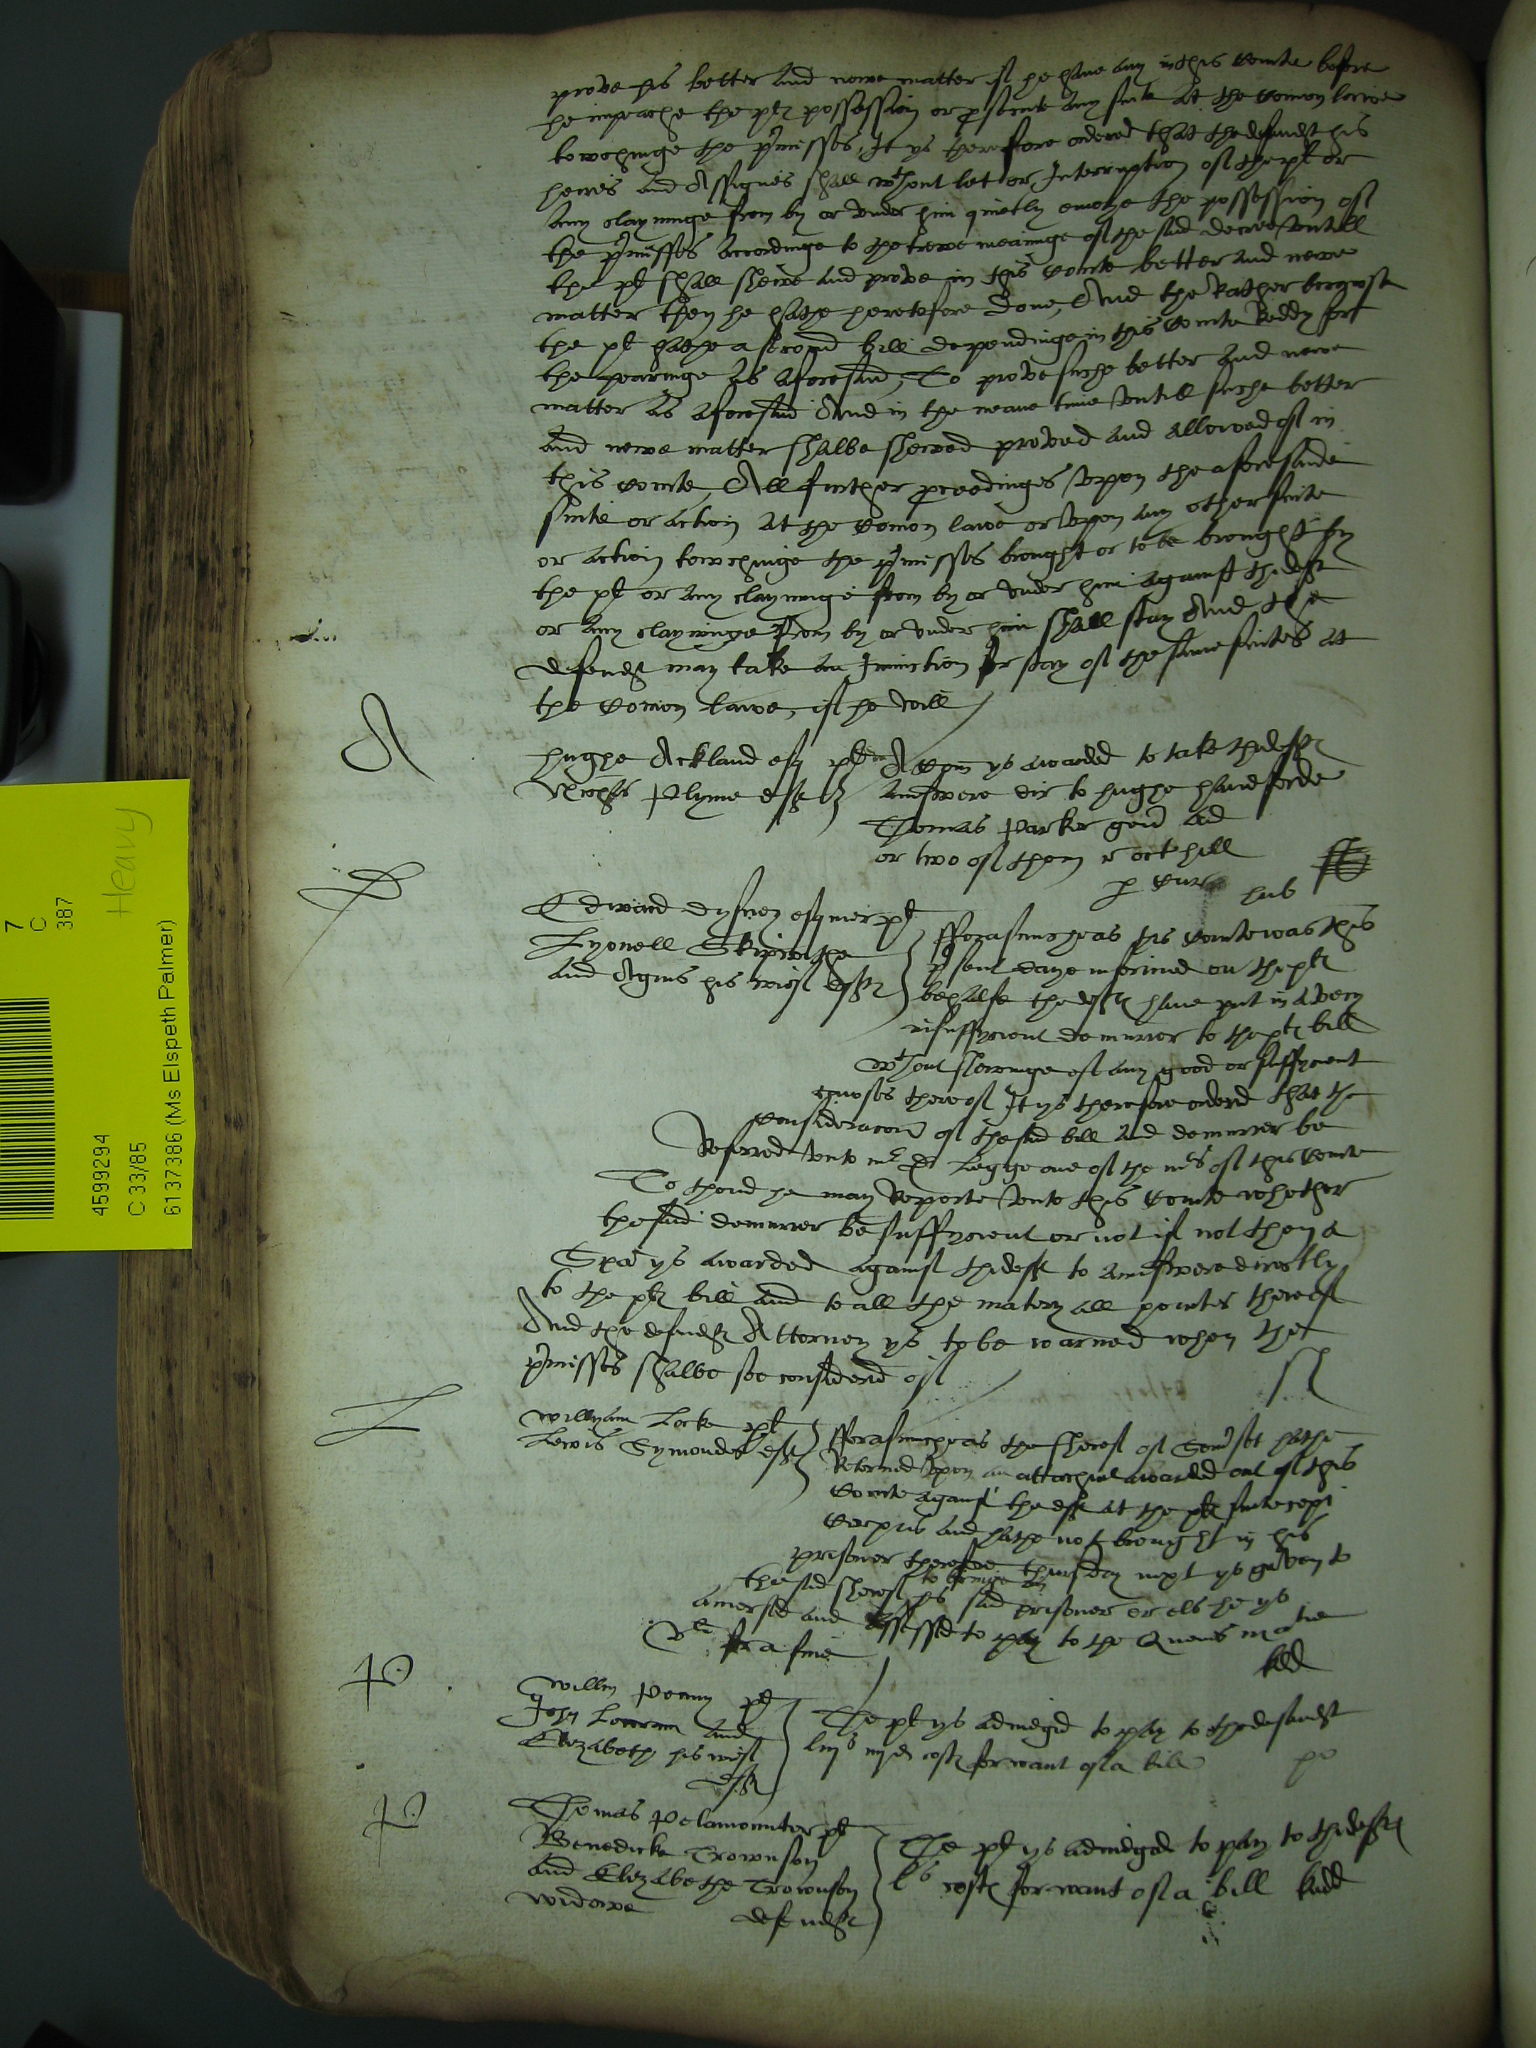 prove his better and newe matter if he have any in this Courte before
he impeache the plt possession or prosecute any suite at the Comon lawe
towchinge the pˀmisses, It ys therefore ordered that the defendt his
heires and Assignes shall wthout let or Interruption of the plt or
any clayminge from by or under him quietly enioye the possession of
the pˀmisses accordinge to the trewe meaninge of the said decree untill
the plt shall shewe and prove in this Courte better and newe
matter then he hathe heretofore done, And the Rather because
the plt hathe a second bill dependinge in this Courte Reddy for
the hearinge as aforesaid, To prove suche better and newe
matter as aforesaid And in the meane time untill suche better
and newe matter shalbe shewed proved and allowed of in
this Courte, All further proceedinges uppon the aforesaide
suite or action at the Comon lawe or uppon any other suite
or action towchinge the pˀmisses brought or to be brought by
the plt or any clayminge from by or under him against the deft
or any clayminge from by or under him shall stay And the
defendt may take an Iniunction for stay of the same suites at
the Comon lawe, if he will
A
Hughe Ackland esq plt
Plyme deft
A Com ys awarded to take the deftes
Answere dir to Hughe Handforde
Thomas Parker gent ad
or two of them r oct hill
D
Edward Dysney esquier plt
Lyonell Skipwithe
and Agnis his wief deftes
fforasmuche as this Courte was this
pˀsent daye informed on the pltes
behalfe the deftes have put in a very
insuffycient demurrer to the pltes bill
wthout shewinge of any good or suffycient
causes thereof It ys therefore ordered that the
consideracon of the said bill and demurrer be
Referred unto mr D Legge one of the mrs of this Courte
To thend he may Reporte unto this Courte whether
the said demurrer be suffycient or not if not then a
Spa ys awarded against the deft to Answere directly
to the pltes bill and to all the materyall pointes thereof
And the defendtes Attorney ys to be warned when the
pˀmisses shalbe soe considered of
L
Willyam Locke plt
Lewis Symondes deft
fforasmuche as the Sheref of Somˀset hathe
Retorned uppon an attachmt awarded out of this
Courte against the deft at the pltes suite cepi
Corpus and hathe not brought in his
prisoner therefore thursday next ys given to
the said Sheref to bringe in
his said prisoner or els he ys
amersed and assessed to pay to the Quenes matie
vli for a fine
P
Willm Penny plt
John and
Elizabeth his wief
deft
The plt ys adiudged to pay to the defendt
costes for want of a bill
P
Thomas Pelamounter plt
Benedicke Trownson
and Elizabethe Trownson
widowe defendtes
The plt ys adiudged to pay to the deftes
ls costes for want of a bill
7
C
387
Heavy
4599294
C 33/85
6137386 (Ms Elspeth Palmer)